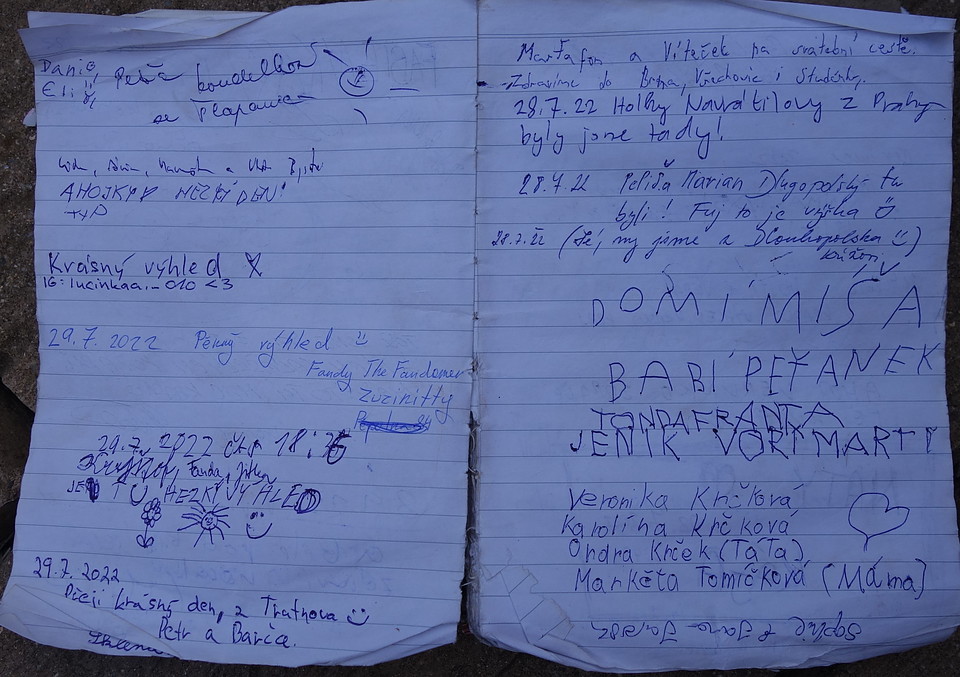 Danie,
Eli
Péťa koudelkov
ze Šlapanic
AHOJKY P HEZKÝ DEN!
Krásný výhled
IG: lucinkaa._010 <3
29.7. 2022 Pěkný výhled
Fandy The Fandomer
Zuzinitty
29.7. 2022
Fanda,
JE TU HEZKÝ VÝHLED
29.7. 2022
Přeji krásný den, z Trutnova
Petr a Barča.
Marťafon a Víteček na svátební cestě.
Zdravíme do Brna, Vřechovic i Studénky.
28.7.22 Holky Navrátilovy z Prahy
byly jsme tady!
28.7.22 Peliša Marian Dlugopolský tu
byli! Fuj to je výška
28.7.22 (Jé, my jsme z Dlouhopolska)
DOMI MÍŠA
BABI PEŤANEK
TONDA FRANTA
JENIK VORI MARTI
Veronika Krčková
Karolína Krčková
Ondra Krček (TáTa)
Markéta Tomíčková (Máma)